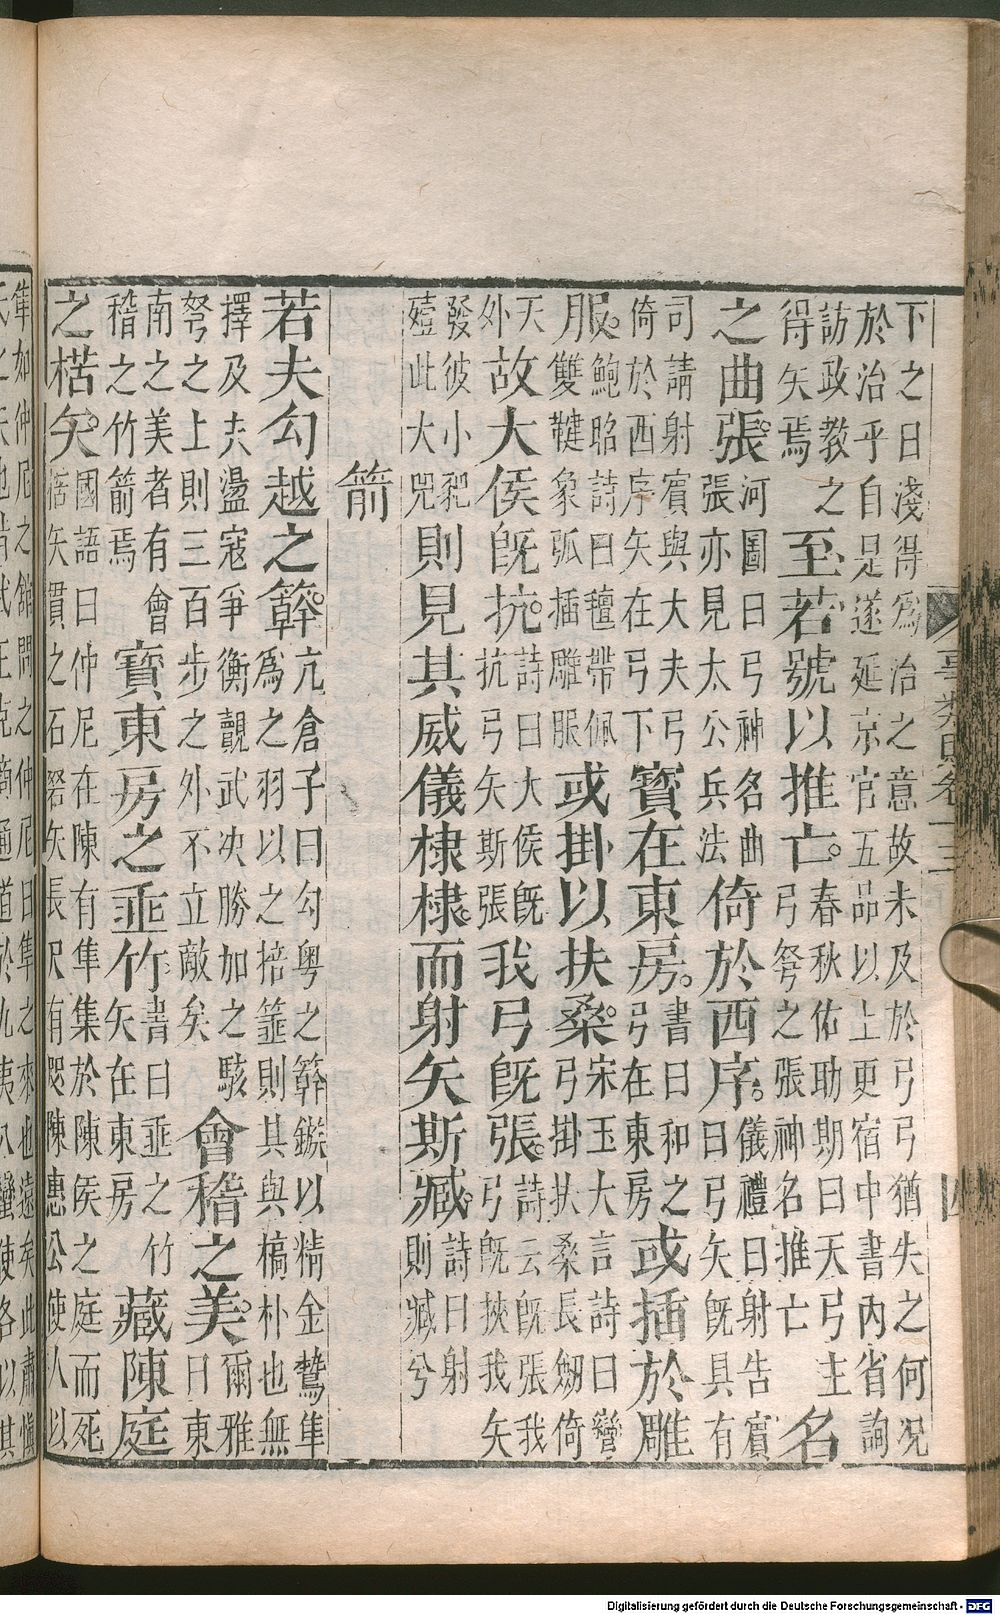 下之日淺得為治之意故未及於弓弓猶失之何況
於治乎自是遂延京官五品以上更宿中書內省詢
訪政教之
得失焉
至若號以推亡
春秋佑助期曰天弓主
弓弩之張神名推亡
名
之曲張
河圖曰弓神名曲
張亦見太公兵法
倚於西序
儀禮曰射告賓
曰弓矢既具有
司請射賓與大夫弓
倚於西序矢在弓下
寶在東房
書曰和之
弓在東房
或插於雕
服
鮑昭詩曰氊帶佩
雙鞬象弧插雕服
或掛以扶桑
宋玉大言詩曰彎
弓掛扶桑長劒倚
天
外
故大侯既抗
詩曰大侯既
抗弓矢斯張
我弓既張
詩云既張我
弓既挾我矢
發彼小豝
殪此大兕
則見其威儀棣棣而射矢斯臧
詩曰射
則臧兮
箭
若夫勾越之簳
亢倉子曰勾粵之簳鏃以精金鷙隼
為之羽以之掊箠則其與槁朴也無
擇及夫盪寇爭衡覿武决勝加之駭
弩之上則三百步之外不立敵矣
會稽之美
爾雅
曰東
南之美者有會
稽之竹箭焉
寶東房之垂竹
書曰垂之竹
矢在東房
藏陳庭
之楛矢
國語曰仲尼在陳有隼集於陳侯之庭而死
楛矢貫之石砮矢長尺有咫陳惠公使人以
隼如仲尼之館問之仲尼曰隼之來也遠矣此肅慎
氏之矢也昔武王克商通道於九夷八蠻使各以其
事類賦卷十三
四
Digitalisierung gefördert durch die Deutsche Forschungsgemeinschaft - DFG